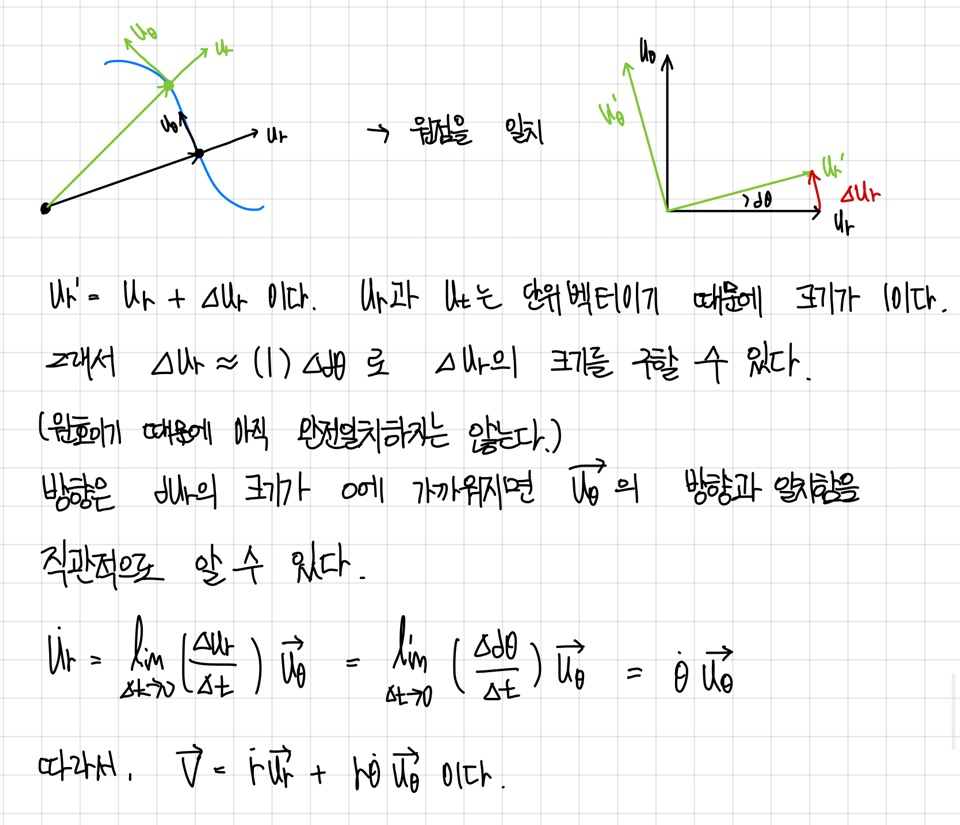 u_θ u_r
u_θ u_r
→ 원점을 일치
u_θ u_θ' u_r' Δu_r dθ u_r
u_r' = u_r + Δu_r 이다. u_r과 u_t는 단위벡터이기 때문에 크기가 1이다.
그래서 Δu_r ≈ (1) Δdθ 로 Δu_r의 크기를 구할 수 있다.
(원호이기 때문에 아직 완전일치하지는 않는다.)
방향은 du_r의 크기가 0에 가까워지면 \vec{u_θ}의 방향과 일치함을
직관적으로 알 수 있다.
\dot{u}_r = lim_{Δt→0} (Δu_r/Δt) \vec{u_θ} = lim_{Δt→0} (Δdθ/Δt) \vec{u_θ} = \dot{θ} \vec{u_θ}
따라서, \vec{V} = \dot{r}\vec{u_r} + r\dot{θ} \vec{u_θ} 이다.